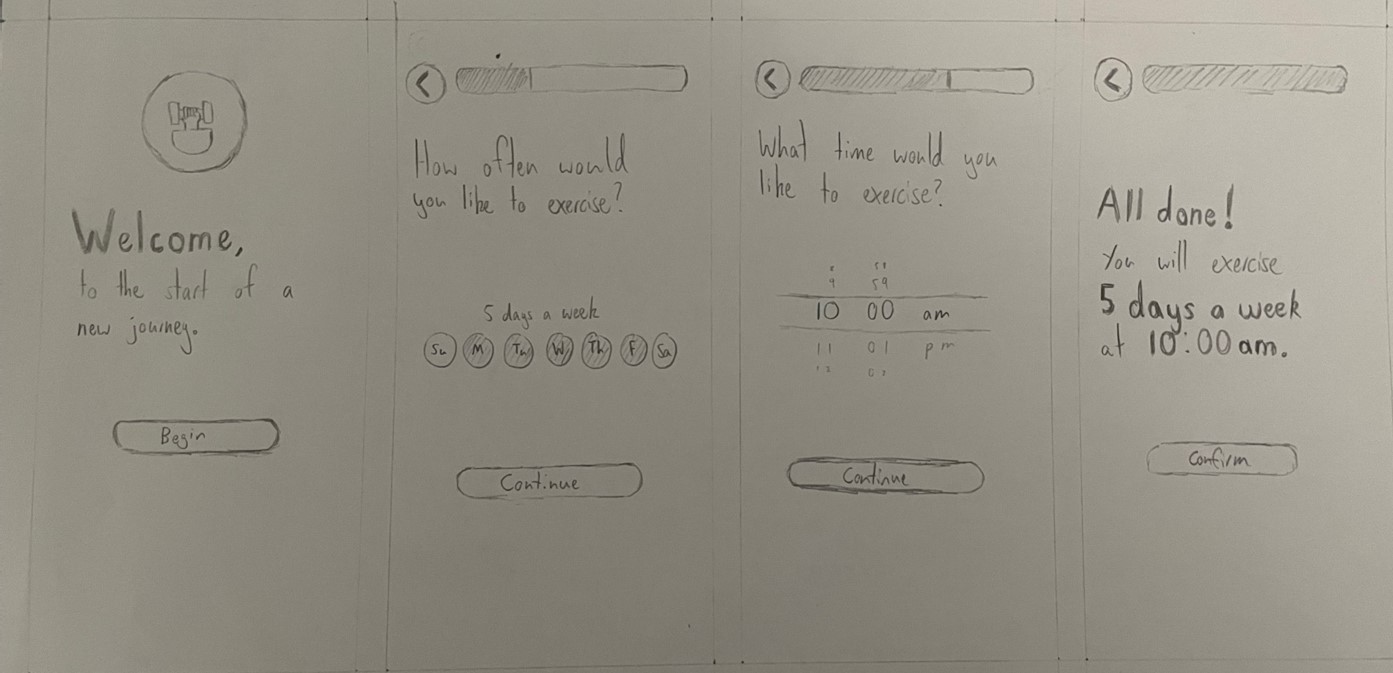 Welcome,
to the start of a
new journey.
Begin
How often would
you like to exercise?
5 days a week
Su M Tu W Th F Sa
Continue
What time would you
like to exercise?
8 58
9 59
10 00 am
11 01 pm
12 02
Continue
All done!
You will exercise
5 days a week
at 10:00 am.
Confirm